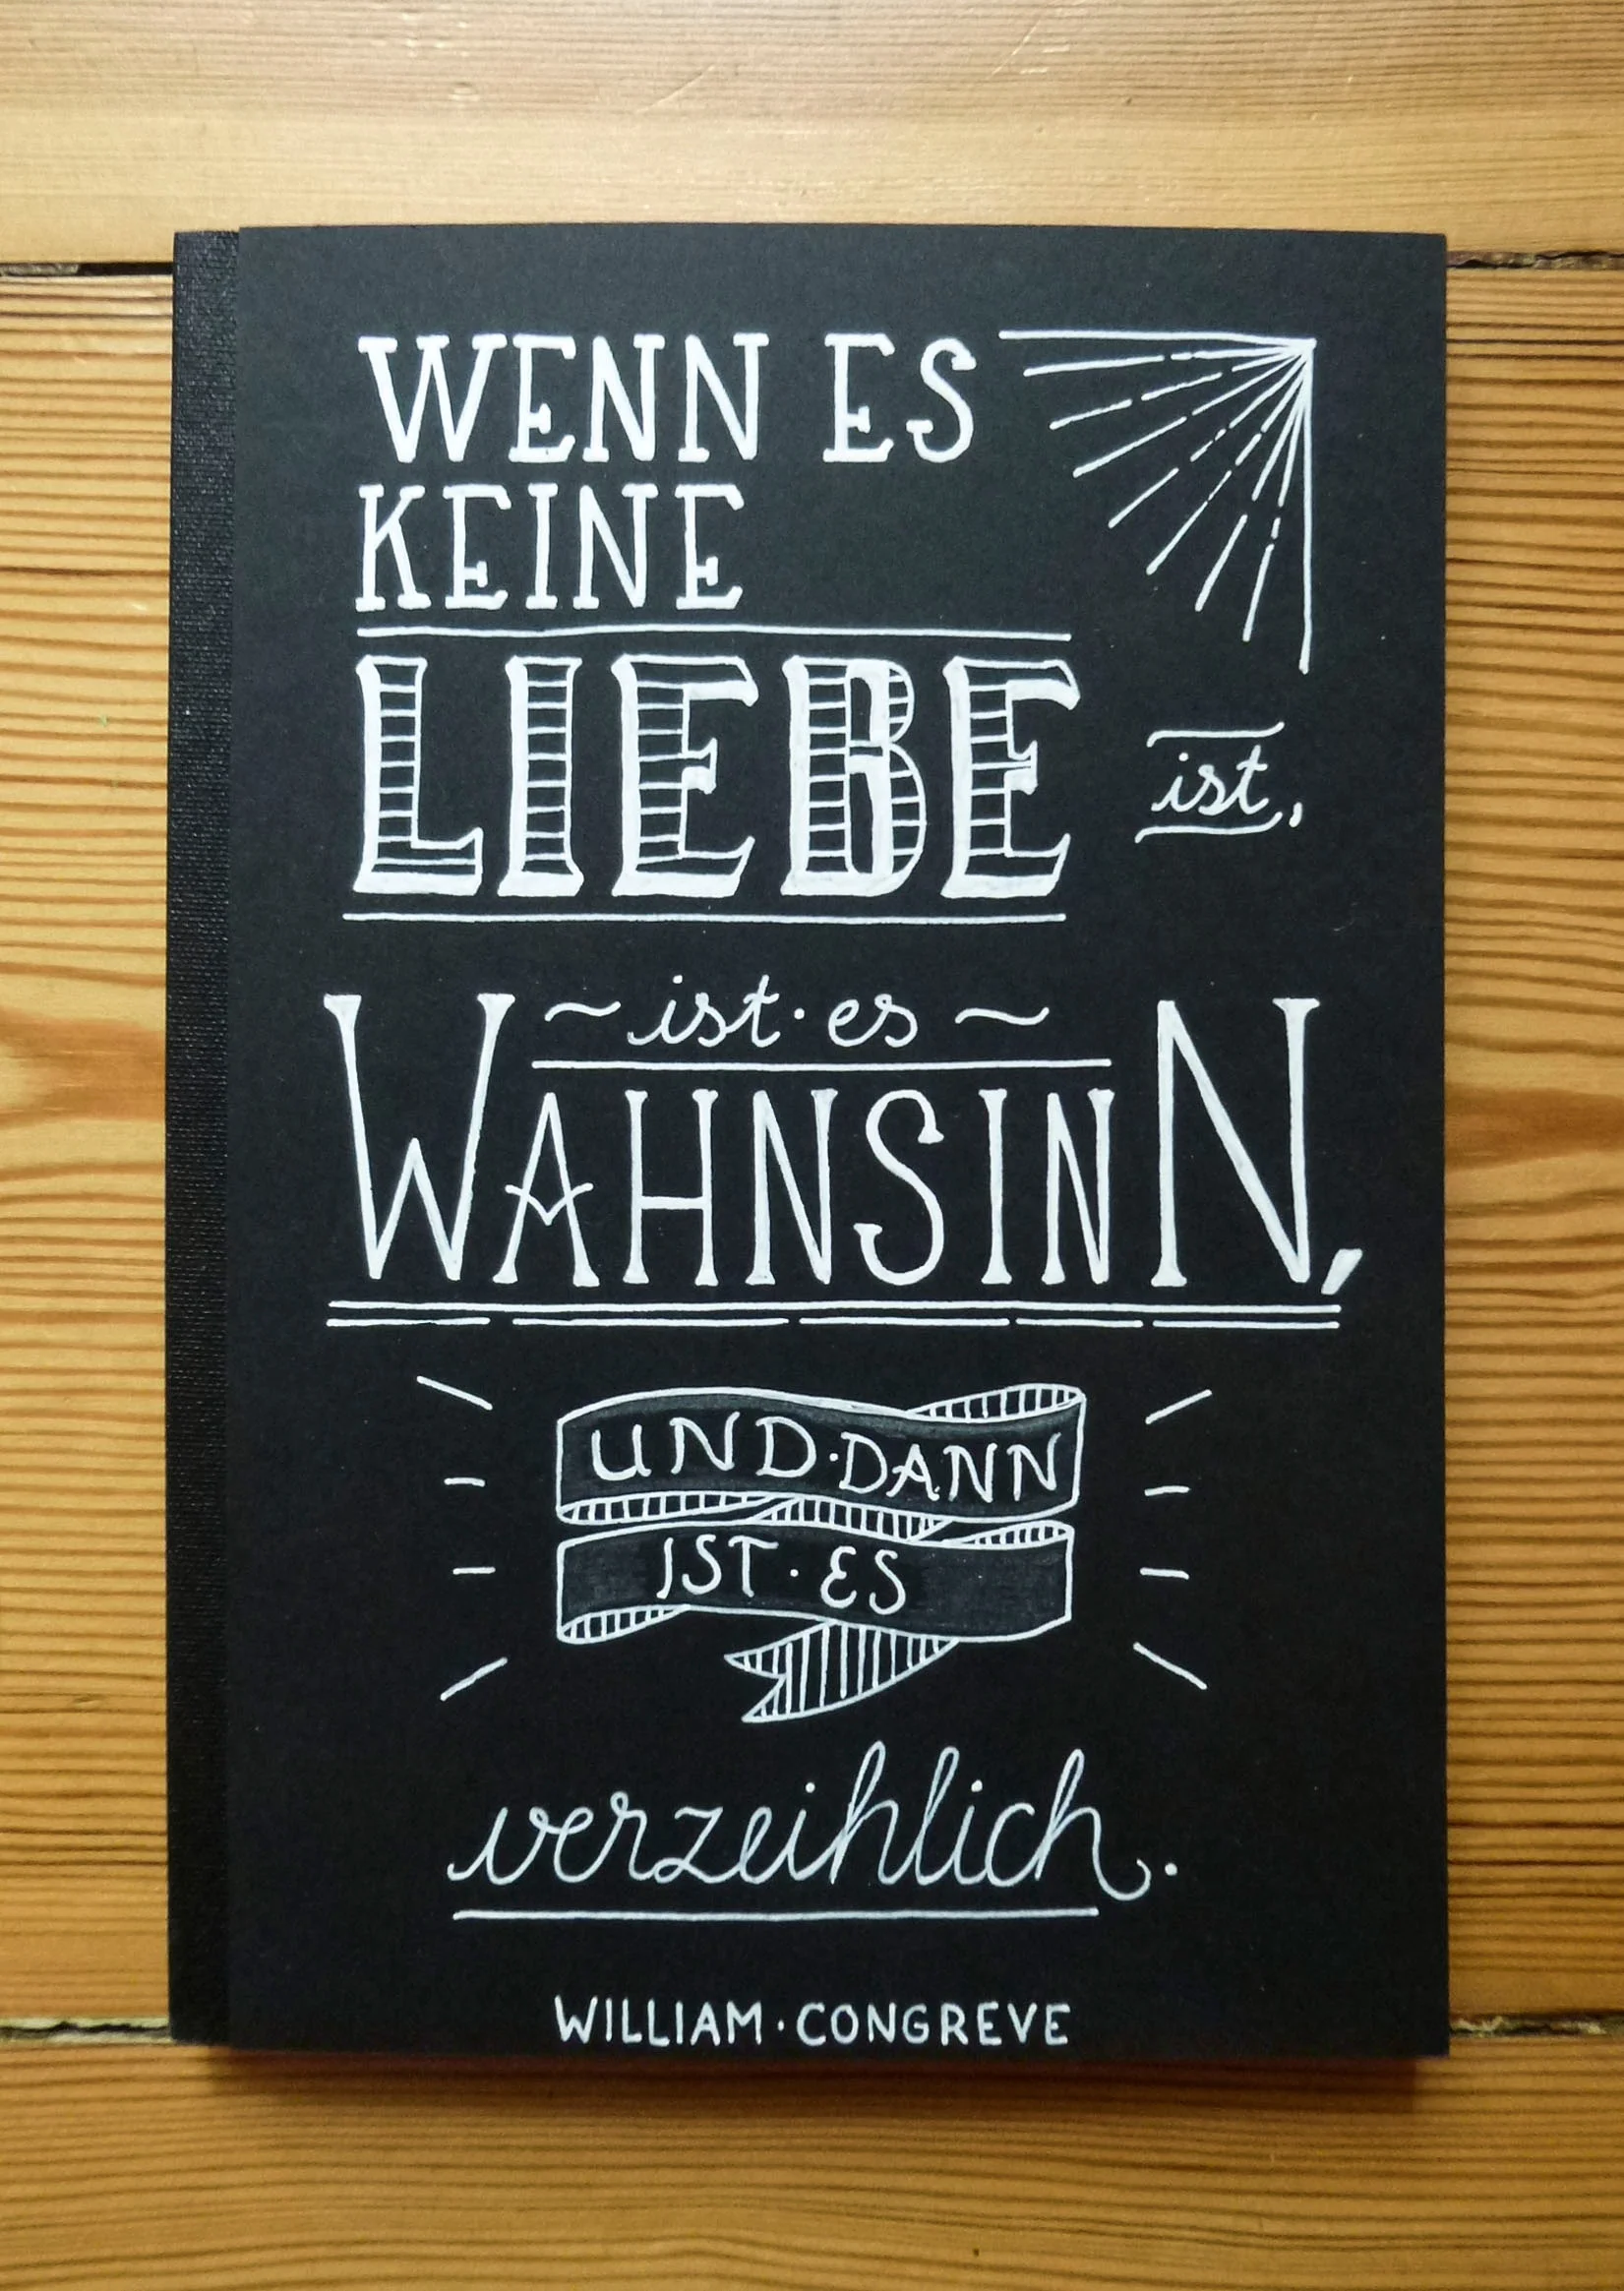 WENN ES
KEINE
LIEBE ist,
ist · es
WAHNSINN,
UND · DANN
IST · ES
verzeihlich.
WILLIAM · CONGREVE